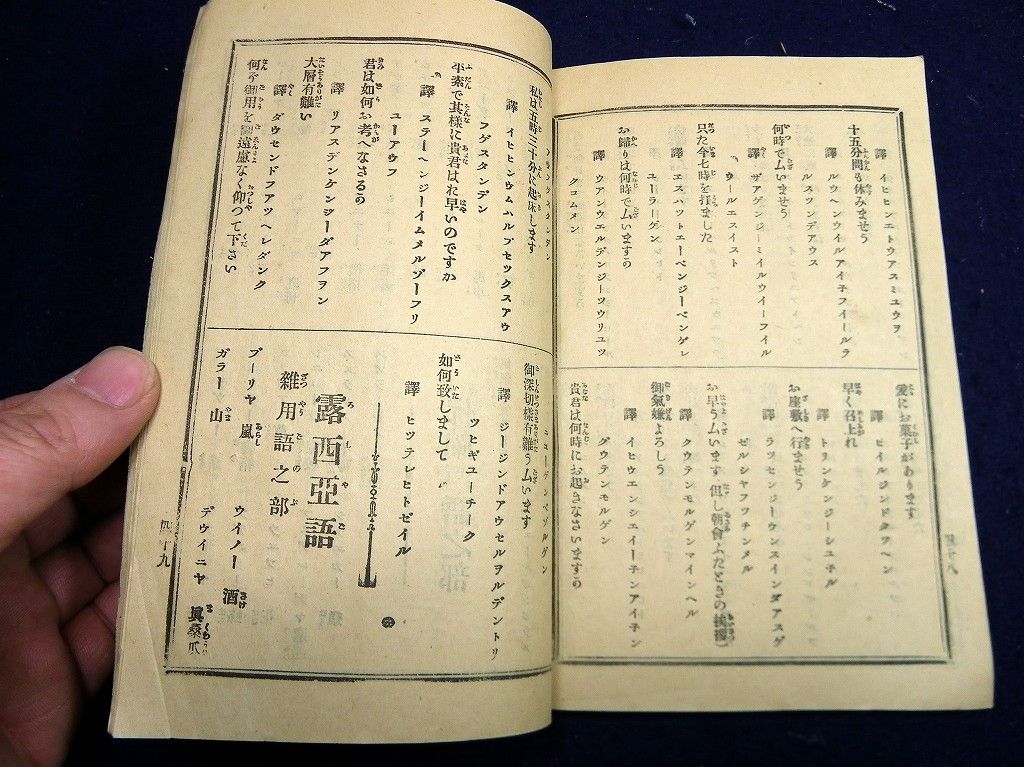 譯 イヒヒンエトウアスミユウヲ
十五分間も休みませう
譯 ルウヘンウイルアイチフイールラ
ルスツンデアウス
何時で厶いませう
譯 ザアゲンジーミイルウイーフイル
ウールエスイスト
只た今七時を打ました
譯 エスハツトエーベンジーベンゲレ
ユーラーゲン
お歸りは何時で厶いますの
譯 ウアンウエルデンジーツウリユツ
クコムメン
爰にお菓子があります
譯 ヒイルジンドクツヘン
早く召上れ
譯 トリンケンジーシユネル
お座敷へ行ませう
譯 ラツセンジーウンスインダアスゲ
ゼルシヤフツチンメル
お早う厶います 但し朝會ふたときの挨拶
譯 クウテンモルゲンマインヘル
御氣嫌よろしう
譯 イヒウエンシエイーチンアイチン
グウテンモルゲン
貴君は何時にお起きなさいますの
私は五時三十分に起床します
譯 イヒヒンウムハルブセツクスアウ
フゲスタンデン
平素で其樣に貴君はお早いのですか
譯 ステーヘンジーイムメルゾーフリ
ユーアウフ
君は如何お考へなさるの
譯 リアスデンケンジーダアフヲン
大層有難い
譯 ダウセンドフアツヘレダンク
何ぞ御用を御遠慮なく仰つて下さい
御深切樣有難う厶います
譯 ジージンドアウセルヲルデントリ
ツヒギユーチーク
如何致しまして
譯 ヒツテレヒトゼイル
露西亞語
雜用語之部
ブーリヤ 嵐 ウイノー 酒
ガラー 山 デウイニヤ 眞桑爪
四十九